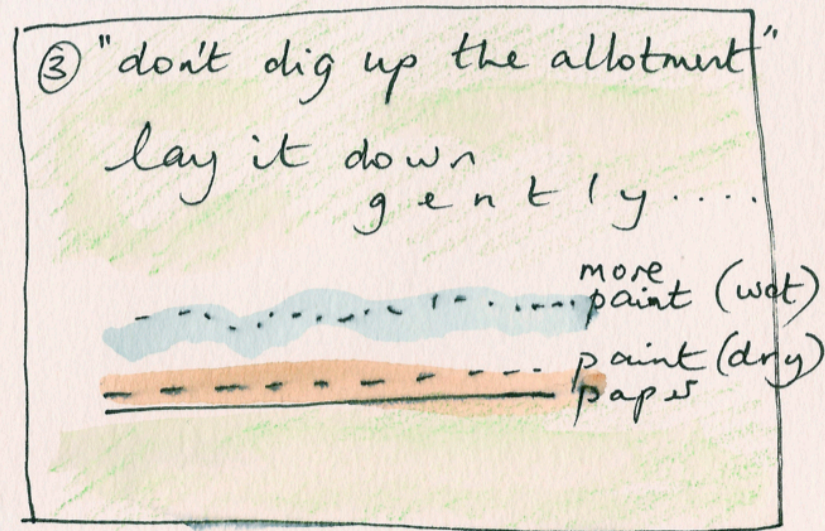 ③ "don't dig up the allotment"
lay it down
gently....
more
paint (wet)
paint (dry)
paper